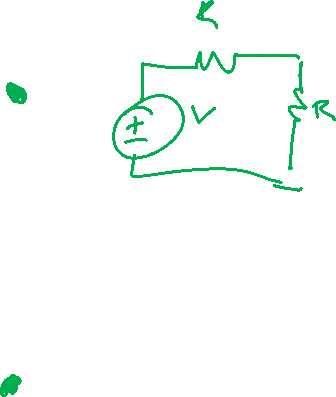 R
V
R